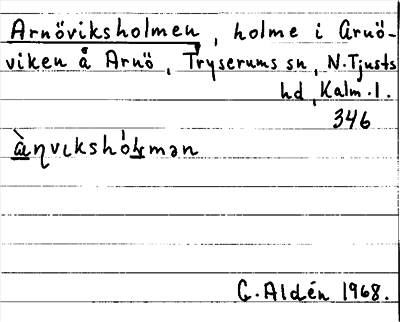 Arnöviksholmen, holme i Arnö-
viken å Arnö, Tryserums sn, N. Tjusts
hd, Kalm. l.
346
G. Aldén 1968.